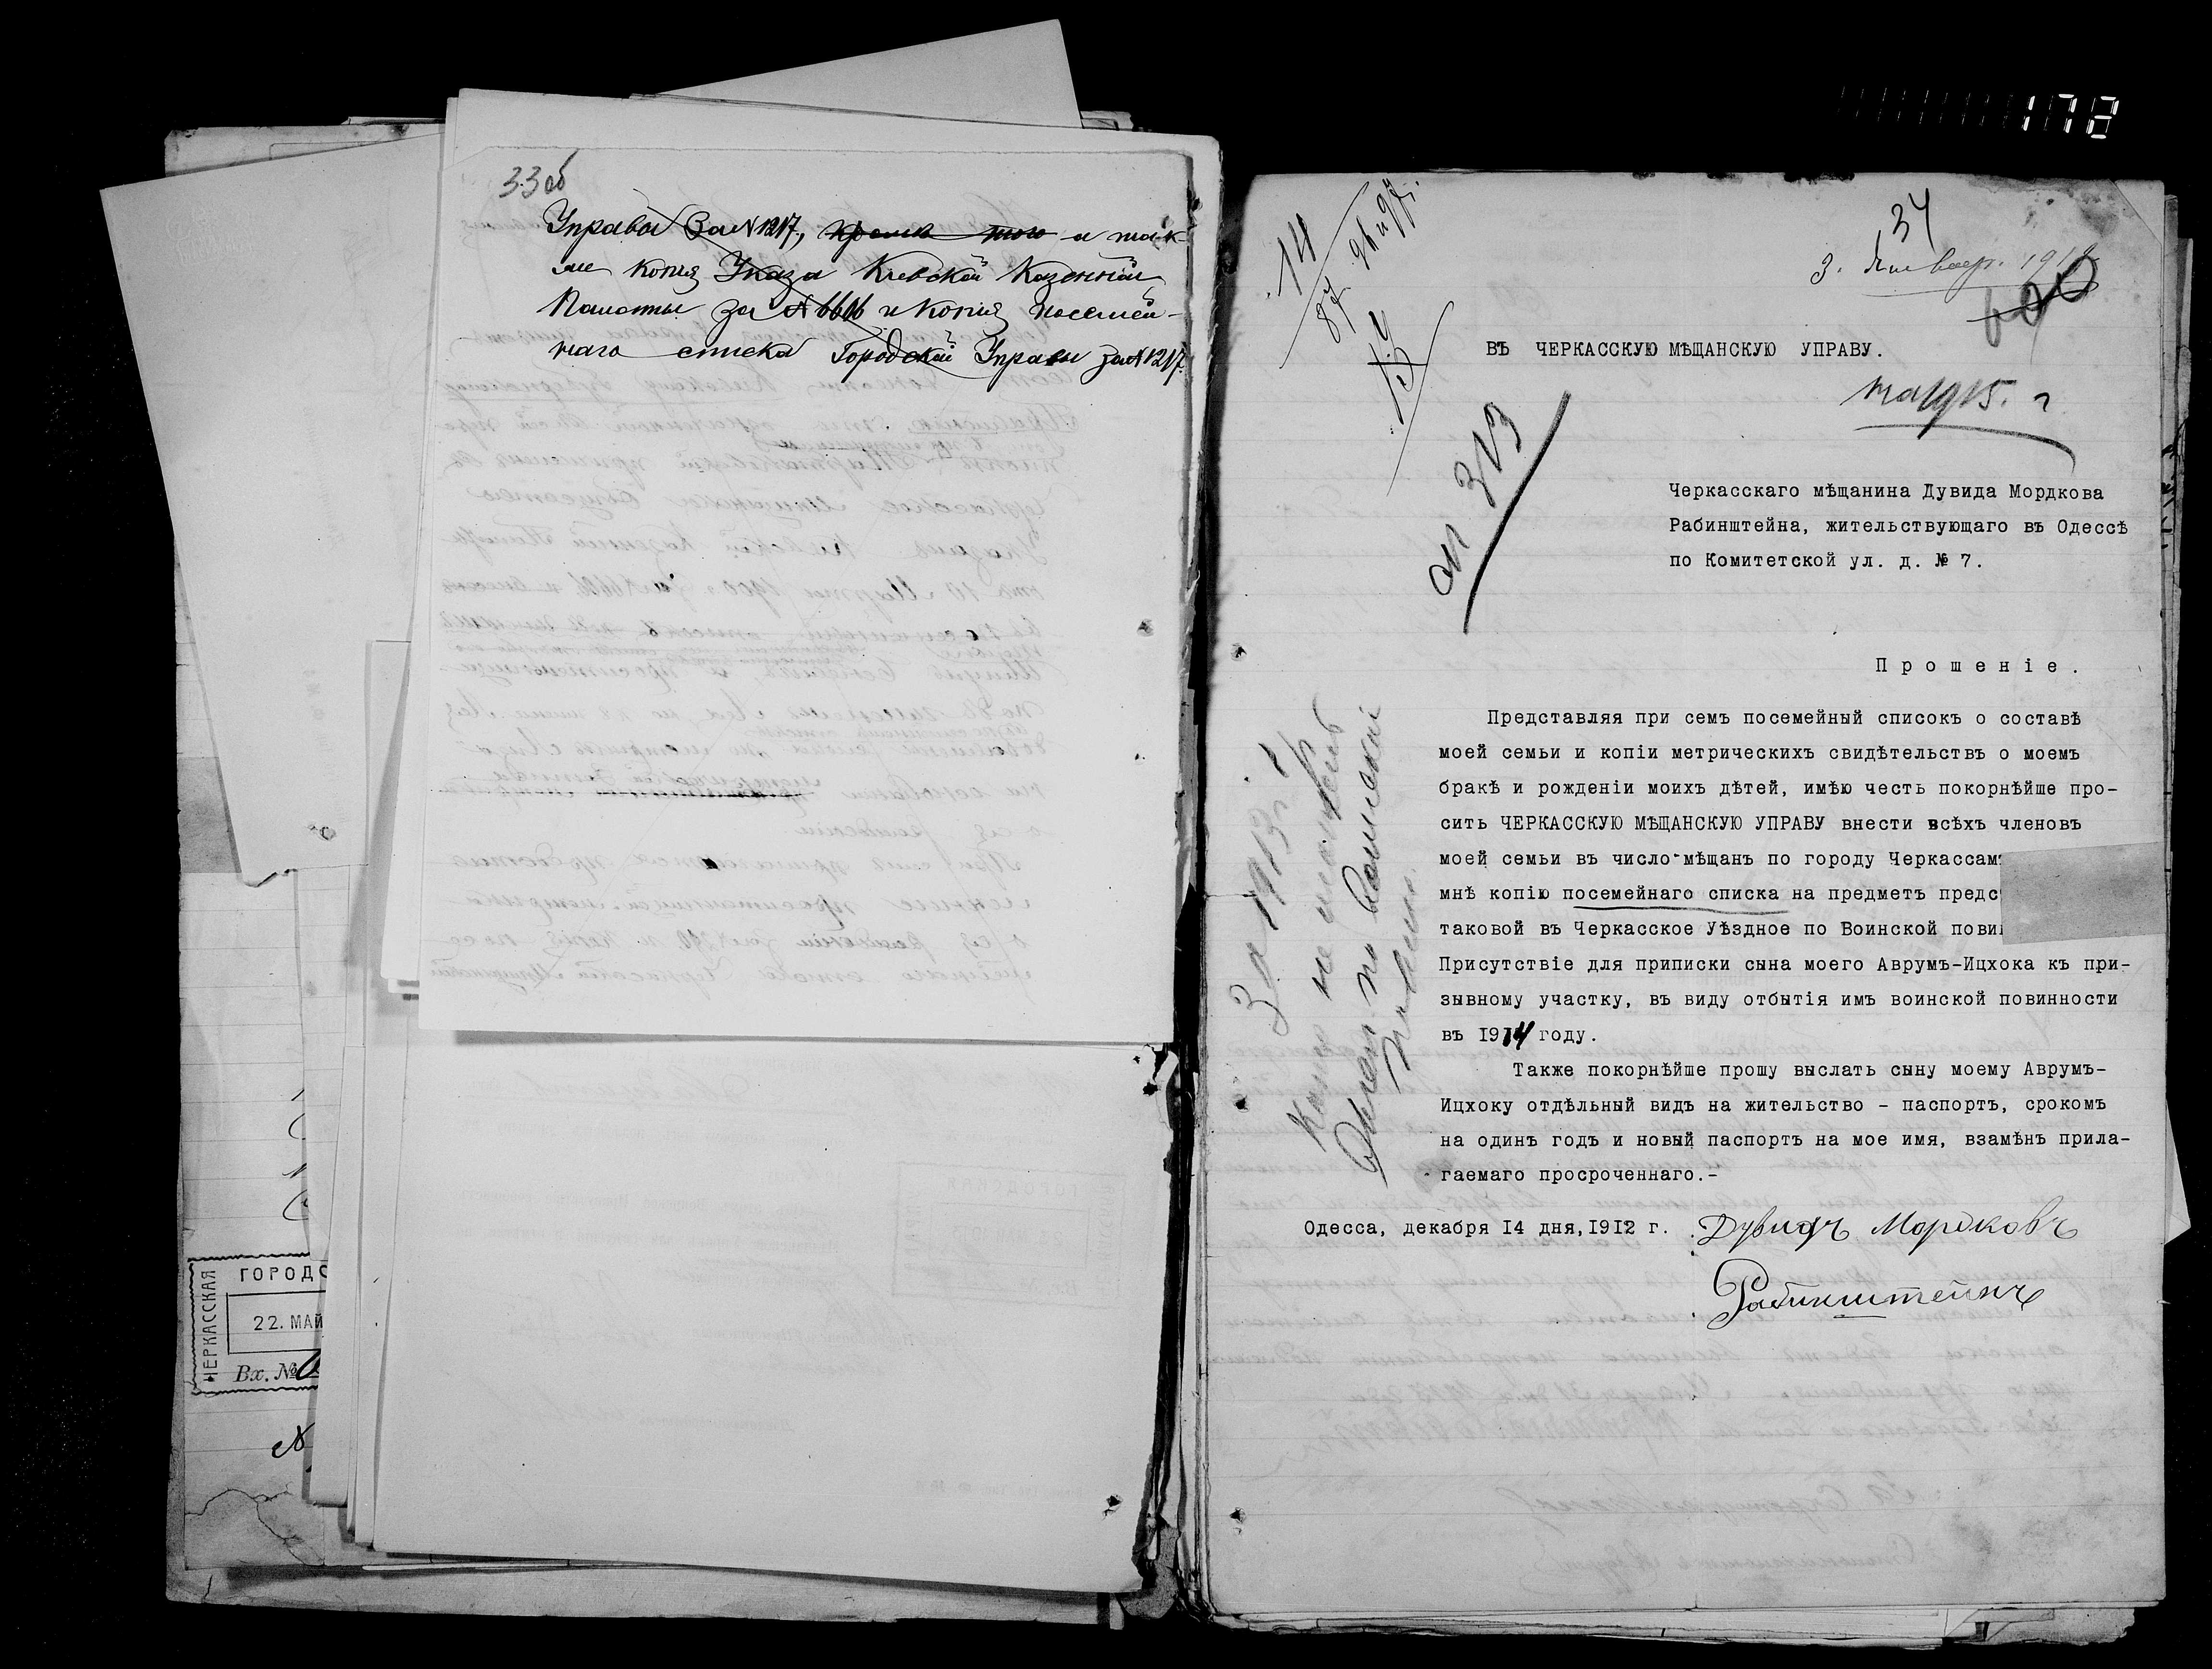 33 об
Управы за № 1217, кроме того а так-
же копия Указа Кіевской Казенной
Палаты за № 6606 и копия посемей-
наго списка Городской Управы за № 1217
ГОРОДС
ЧЕРКАССКАЯ
22. МАЙ
Вх. №
172
34
3. Январ. 191
600
14
ВЪ ЧЕРКАССКУЮ МѢЩАНСКУЮ УПРАВУ.
на 1915. г
оп 313
Черкасскаго мѣщанина Дувида Мордкова
Рабинштейна, жительствующаго въ Одессѣ
по Комитетской ул. д. № 7.
Прошеніе.
Представляя при семъ посемейный списокъ о составѣ
моей семьи и копіи метрическихъ свидѣтельствъ о моемъ
бракѣ и рожденіи моихъ дѣтей, имѣю честь покорнѣйше про-
сить ЧЕРКАССКУЮ МѢЩАНСКУЮ УПРАВУ внести всѣхъ членовъ
моей семьи въ число мѣщанъ по городу Черкассам
мнѣ копію посемейнаго списка на предметъ предс
таковой въ Черкасское Уѣздное по Воинской пови
Присутствіе для приписки сына моего Аврумъ-Ицхока къ при-
зывному участку, въ виду отбытія имъ воинской повинности
въ 1914 году.
Также покорнѣйше прошу выслать сыну моему Аврумъ-
Ицхоку отдѣльный видъ на жительство - паспортъ, срокомъ
на одинъ годъ и новый паспортъ на мое имя, взамѣнъ прила-
гаемаго просроченнаго.-
Одесса, декабря 14 дня, 1912 г. Дувидъ Мордковъ
Рабинштейнъ
За 1913 г